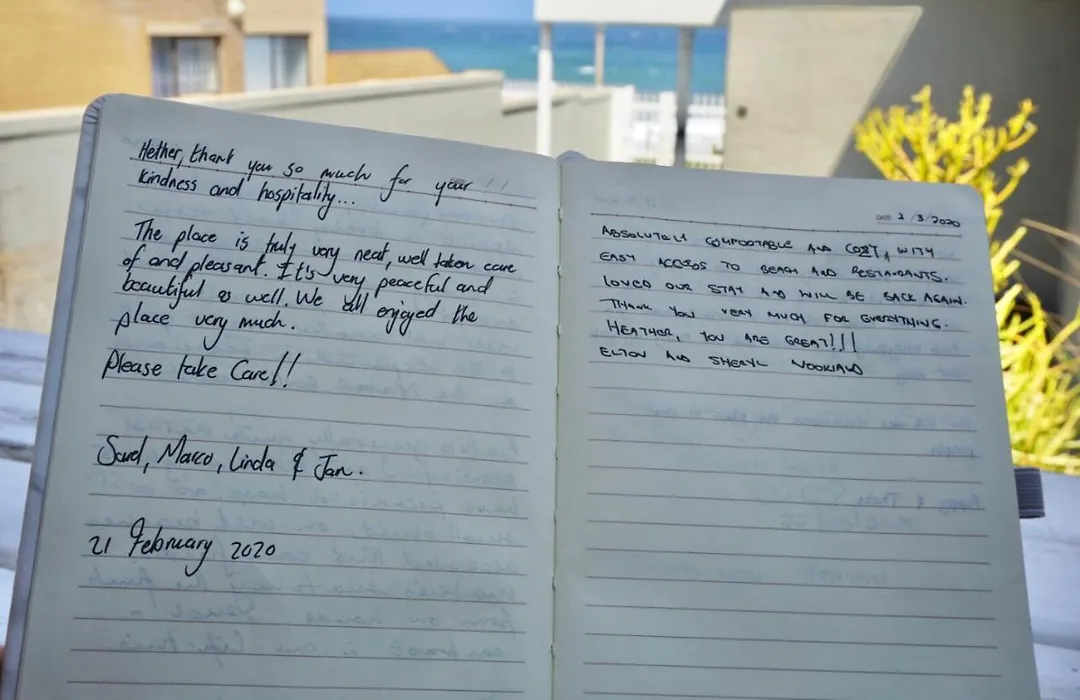 Hether, thank you so much for your
kindness and hospitality...
The place is truly very neat, well taken care
of and pleasant. It's very peaceful and
beautiful as well. We all enjoyed the
place very much.
Please take Care!!
Marco, Linda & Jan.
21 February 2020
DATE 2/3/2020
ABSOLUTELY COMFORTABLE AND COZY, WITH
EASY ACCESS TO BEACH AND RESTAURANTS.
LOVED OUR STAY AND WILL BE BACK AGAIN.
THANK YOU VERY MUCH FOR EVERYTHING.
HEATHER, YOU ARE GREAT!!!
ELTON AND SHERYL